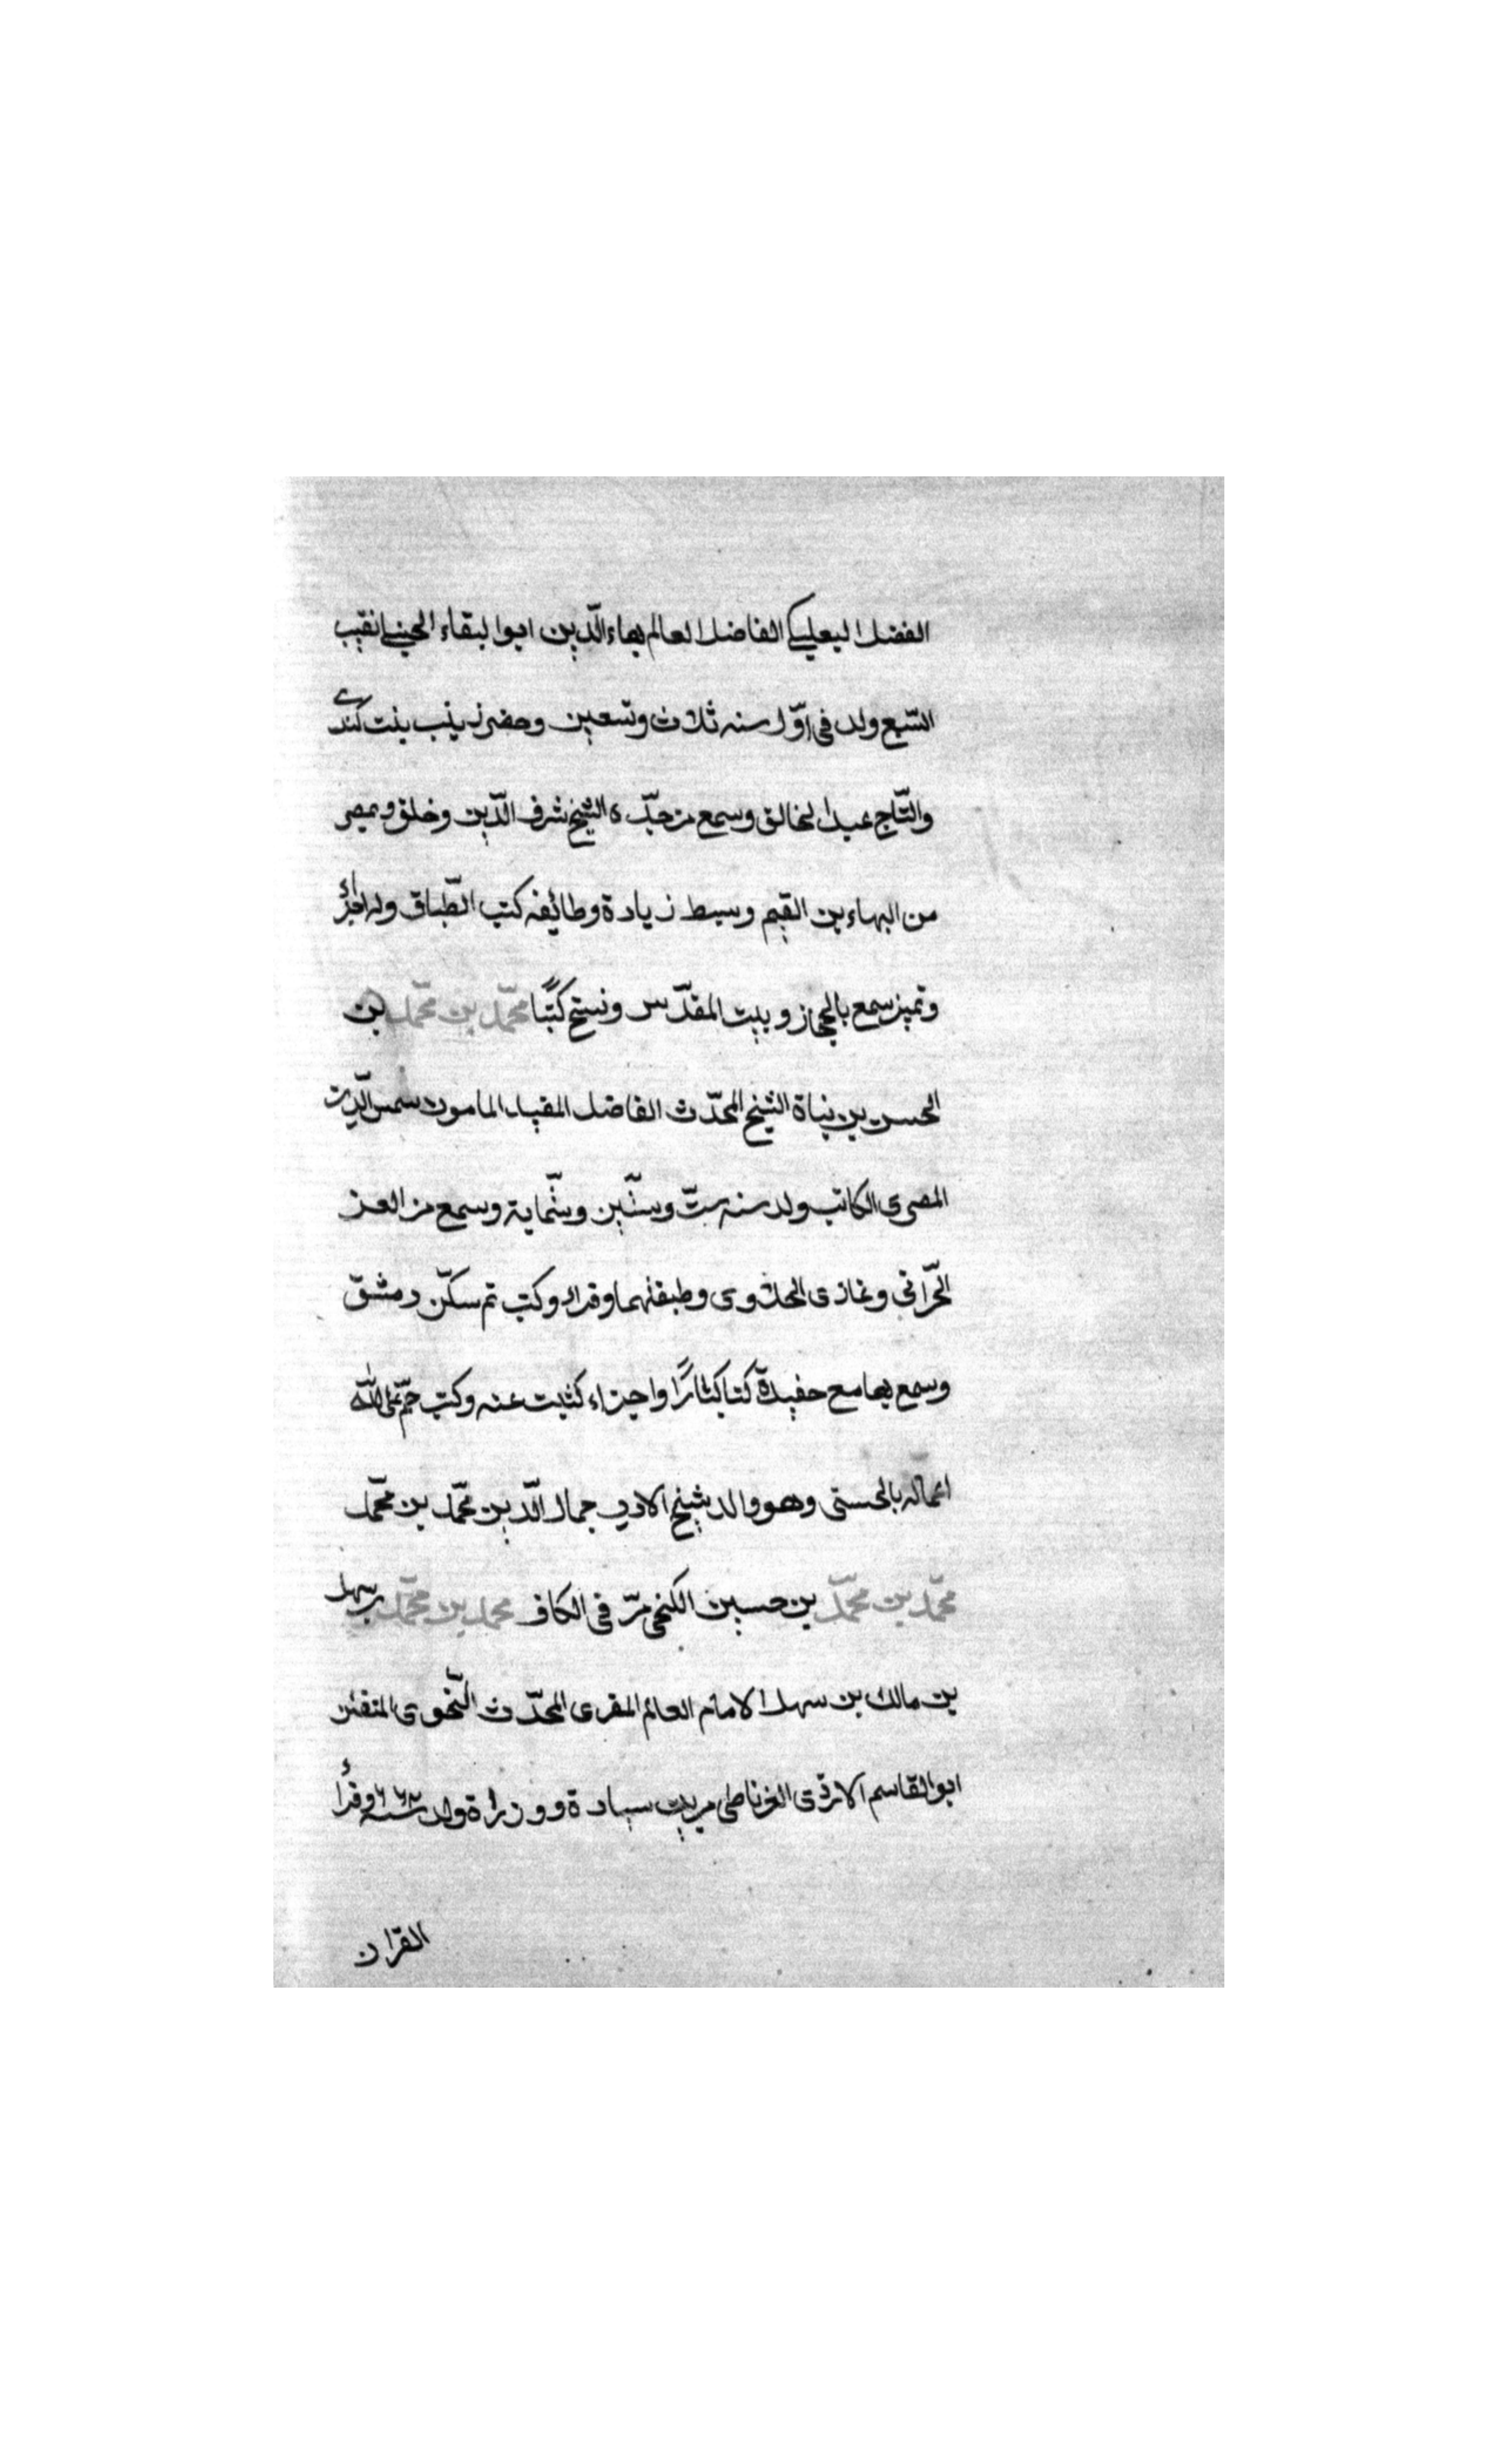 الفضل البعلبكي الفاضل العالم بهاء الدّين ابوا لبقاء الحنبلي نقيب
السّبع ولد فى اوّل سنه ثلاث وتسعين وحضر زينب بنت كندى
والتّاج عبدا لخالق وسمع من جدّه الشيخ شرف الدّين وخلق وبمصر
من البهاء بن القيم وسبط زيادة وطائفه كتب الطّباق وله اجزاء
وتميز سمع بالحجاز وبيت المقدّس ونسخ كتبًا محمّد بن محمّد بن
الحسن بن نباة الشيخ المحدّث الفاضل المفيد المامون شمس الدّين
المصرى الكاتب ولد سنه ستّ وستّين وستّماية وسمع من العز
الحّرانى وغازى الحلاوى وطبقتهما وقراد وكتب تم سكّن دمشق
وسمع بجامع حفيدة كتا كثارًا واجزاء كتبت عنه وكتب ختم على الله
اعماله بالحسنى وهو والد شيخ الادب جمال الدّين محمّد بن محمّد
محمّد بن محمّد بن حسين الكنجى مرّ فى الكاف محمد بن محمّد بن سهل
بن مالك بن سهل الامام العالم المقرى المحدّث النّحوى المتفنن
ابوالقاسم الازدّى الغرناطى من بيت سيادة ووزارة ولد سنة ٦٦٢ وقرأ
القرّان